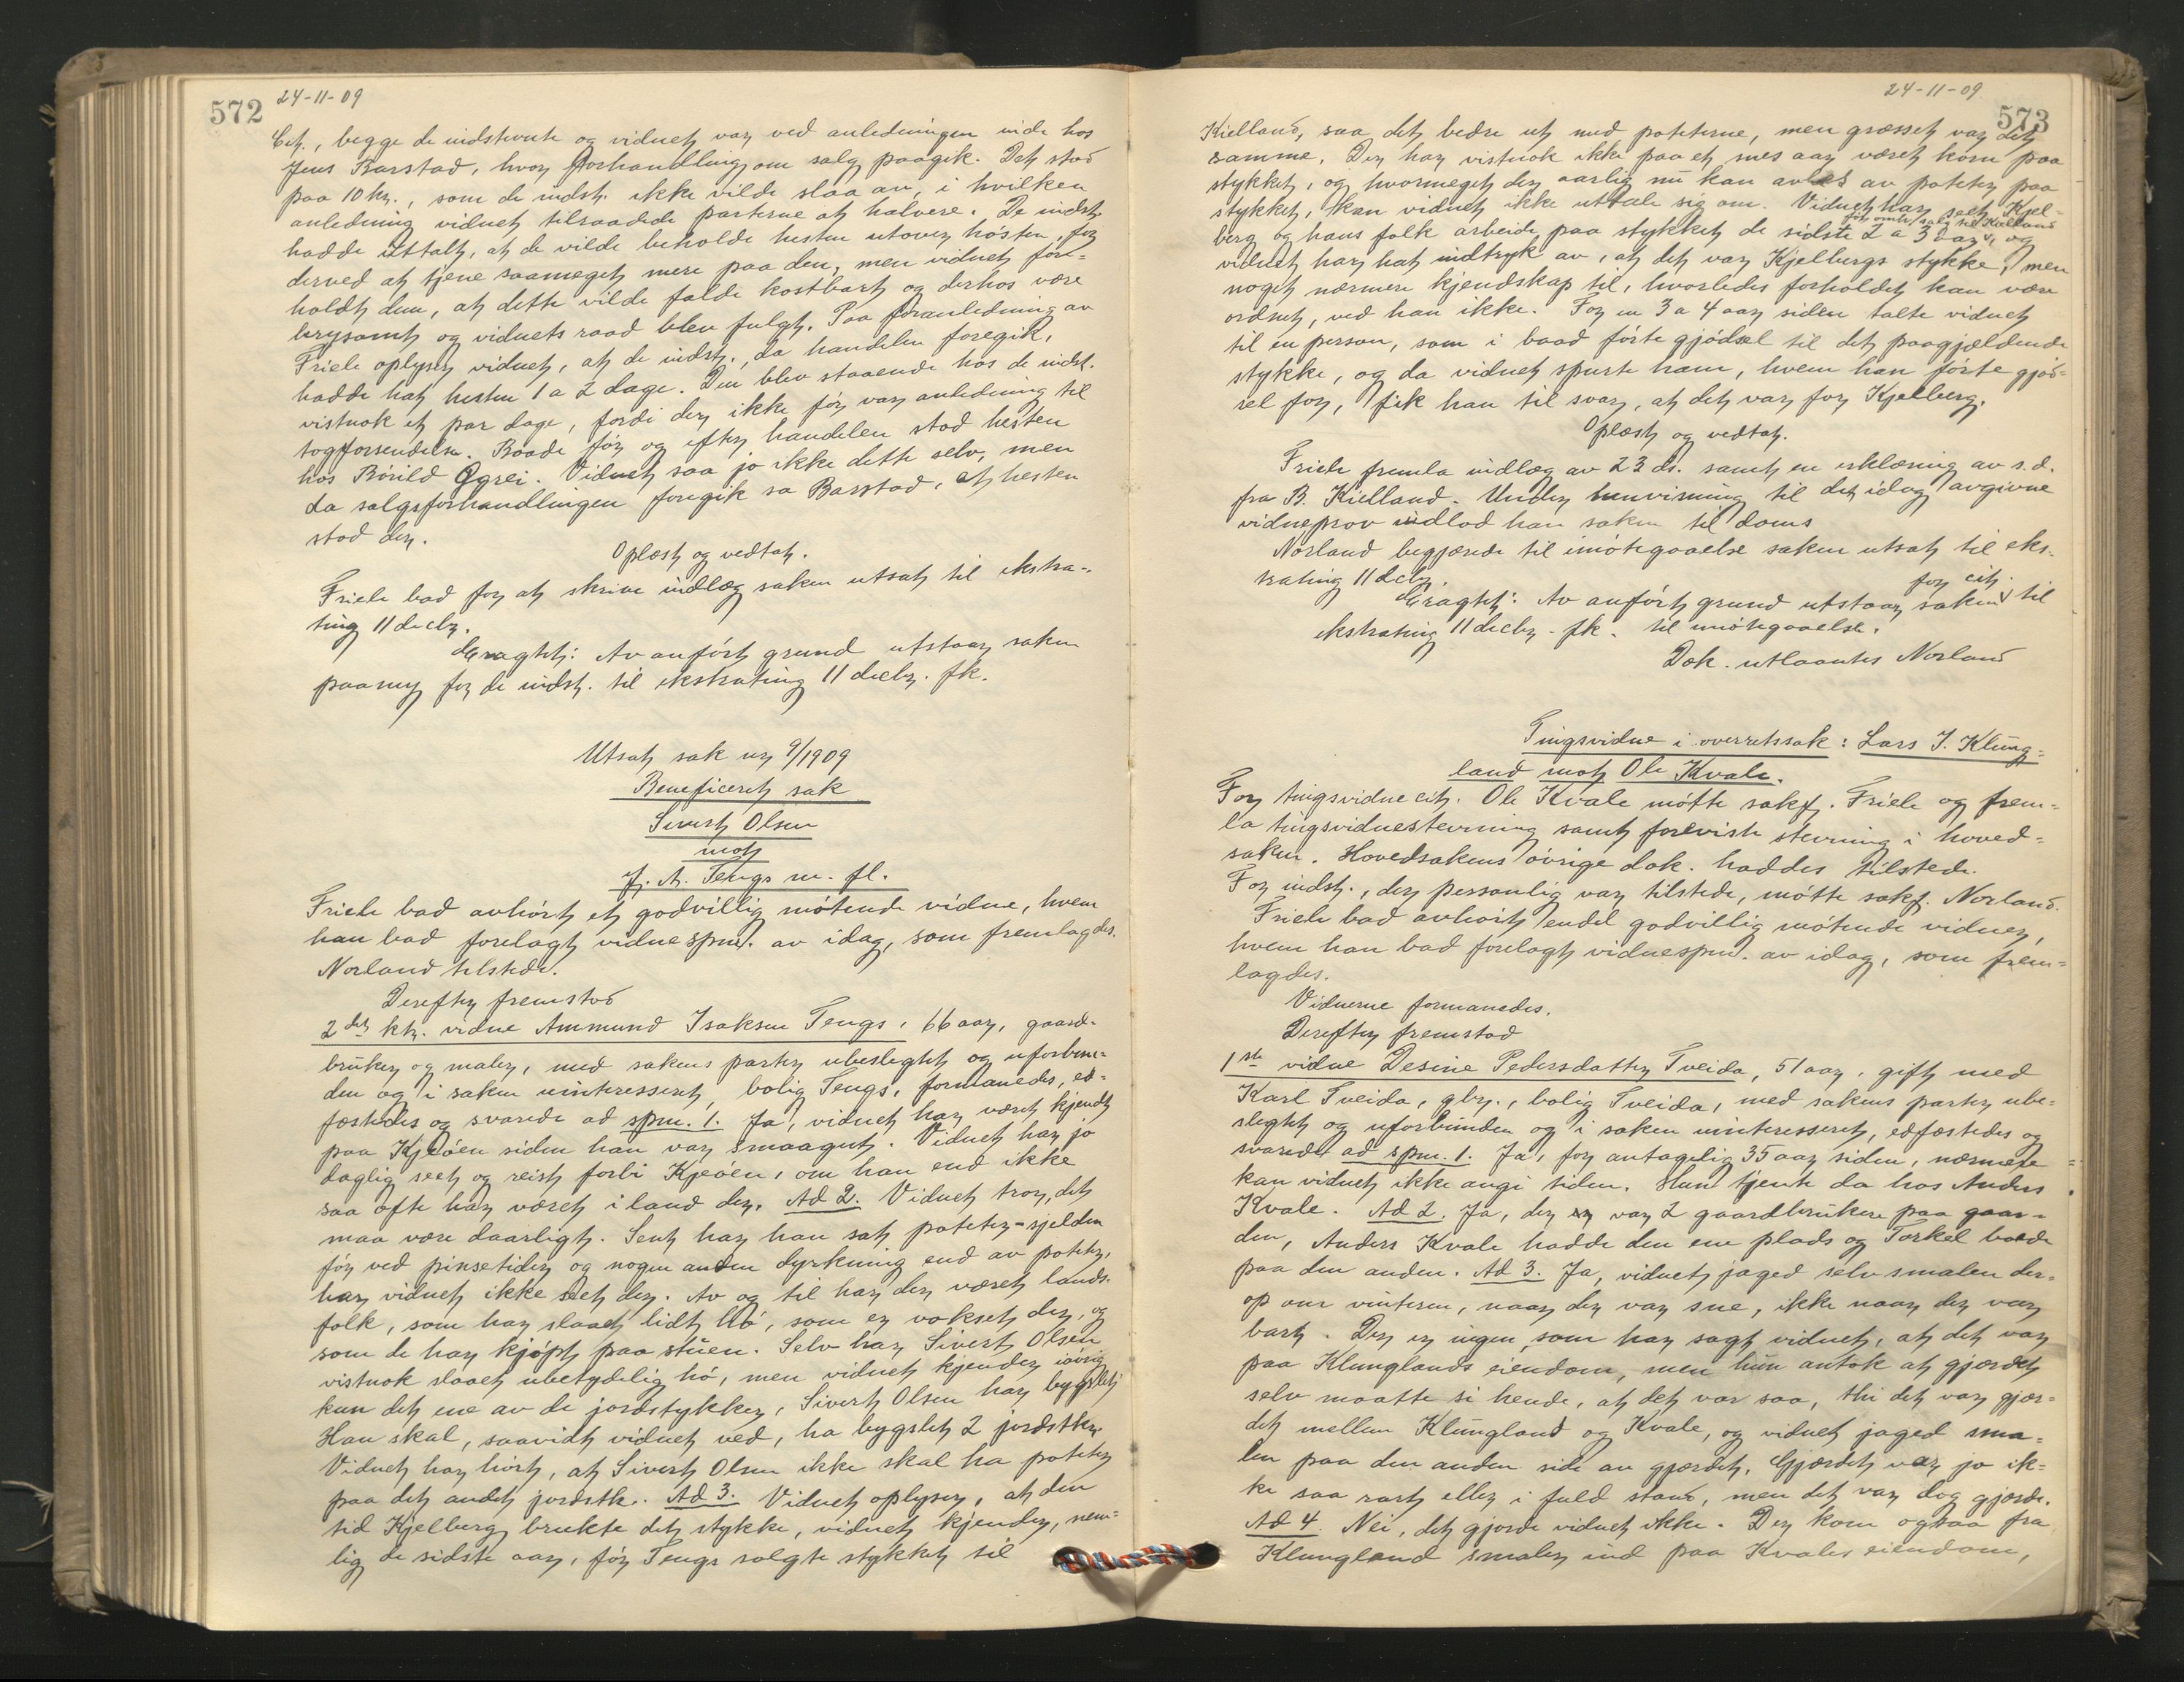 572 24-11-09
Cit., begge de indstevnte og vidnet var ved anledningen inde hos
Jens Barstad, hvor forhandling om salg paagik. Det stod
paa 10 kr., som de indst. ikke vilde slaa av, i hvilken
anledning vidnet tilraadede parterne at halvere. De indst.
hadde uttalt, at de vilde beholde hesten utover hösten, for
derved at tjene saameget mere paa den, men vidnet fore-
holdt dem, at dette vilde falde kostbart og derhos være
brysomt og vidnets raad blev fulgt. Paa foranledning av
Friele oplyser vidnet, at de indst., da handelen foregik,
hadde hat hesten 1 a 2 dage. Den blev staaende hos de indst.
vistnok et par dage, fordi der ikke för var anledning til
togforsendelse. Baade för og efter handelen stod hesten
hos Börild Egrei. Vidnet saa jo ikke dette selv, men
da salgsforhandlingen foregik sa Barstad, at hesten
stod der.
Oplæst og vedtat.
Friele bad for at skrive indlæg saken utsat til ekstra-
ting 11 decbr.
Eragtet: Av anfört grund utstaar saken
paany for de indst. til ekstrating 11 decbr. fk.
Utsat sak nr 9/1909
Beneficeret sak
Sivert Olsen
mot
J. A. Tengs m. fl.
Friele bad avhört et godvillig mötende vidne, hvem
han bad forelagt vidnespm. av idag, som fremlagdes.
Norland tilstede.
Derefter fremstod
2det ktr. vidne Ammund Isaksen Tengs, 66 aar, gaard-
bruker og maler, med sakens parter ubeslegtet og uforbun-
den og i saken uinteresseret, bolig Tengs, formanedes, ed-
fæstedes og svarede ad spm. 1. Ja, vidnet har været kjendt
paa Kjeöen siden han var smaagut. Vidnet har jo
daglig seet og reist forbi Kjeöen, om han end ikke
saa ofte har været i land der. Ad 2. Vidnet tror, det
maa være daarligt. Sent har han sat poteter - sjelden
för ved pinsetider og nogen anden dyrkning end av poteter
har vidnet ikke seet der. Av og til har der været lands-
folk, som har slaaet lidt hö, som er vokset der, og
som de har kjöpt paa stuen. Selv har Sivert Olsen
vistnok slaaet ubetydelig hö, men vidnet kjender iövrig
kun det ene av de jordstykker, Sivert Olsen har bygslet
Han skal, saavidt vidnet ved, ha bygslet 2 jordstkr.
Vidnet har hört, at Sivert Olsen ikke skal ha poteter
paa det andet jordstk. Ad 3. Vidnet oplyser, at den
tid Kjelberg brukte det stykke, vidnet kjender, nem-
lig de sidste aar, för Tengs solgte stykket til
24-11-09 573
Kielland, saa det bedre ut med poteterne, men græsset var det
samme. Der har vistnok ikke paa et snes aar været korn paa
stykket, og hvormeget der aarlig nu kan avles av poteter paa
stykket, kan vidnet ikke uttale sig om. Vidnet har seet Kjel-
för omh. salg til Kielland
berg og hans folk arbeide paa stykket de sidste 2 a 3 aar v, og
vidnet har hat indtryk av, at det var Kjelbergs stykke, men
noget nærmere kjendskap til, hvorledes forholdet kan være
ordnet, ved han ikke. For en 3 a 4 aar siden talte vidnet
til en person, som i baad förte gjödsel til det paagjældende
stykke, og da vidnet spurte ham, hvem han förte gjöd-
sel for, fik han til svar, at det var for Kjelberg.
Oplæst og vedtat.
Friele fremla indlæg av 23 ds. samt en erklæring av s.d.
fra B. Kielland. Under henvisning til det idag avgivne
vidneprov indlod han saken til doms
Norland begjærede til imötegaaelse saken utsat til eks-
trating 11 decbr.
for cit.
Eragtet: Av anfört grund utstaar saken v til
ekstrating 11 decbr. fk. til imötegaaelse.
Dok. utlaantes Norland
Tingsvidne i overretssak: Lars J. Klung-
land mot Ole Kvale.
For tingsvidnecit. Ole Kvale mötte sakf. Friele og frem-
la tingsvidnestevning samt foreviste stevning i hoved-
saken. Hovedsakens övrige dok. haddes tilstede.
For indst., der personlig var tilstede, mötte sakf. Norland.
Friele bad avhört endel godvillig mötende vidner,
hvem han bad forelagt vidnespm. av idag, som frem-
lagdes.
Vidnerne formanedes.
Derefter fremstod
1ste vidne Desine Pedersdatter Tveida, 51 aar, gift med
Karl Tveida, gbr., bolig Tveida, med sakens parter ube-
slegtet og uforbunden og i saken uinteresseret, edfæstedes og
svarede ad spm. 1. Ja, for antagelig 35 aar siden, nærmere
kan vidnet ikke angi tiden. Hun tjente da hos Anders
Kvale. Ad 2. Ja, der var 2 gaardbrukere paa gaar-
den, Anders Kvale hadde den ene plads og Torkel bodde
paa den anden. Ad 3. Ja, vidnet jaged selv smalen der-
op om vinteren, naar der var sne, ikke naar der var
bart. Der er ingen, som har sagt vidnet, at det var
paa Klunglands eiendom, men hun antok at gjærdet
selv maatte si hende, at det var saa, thi det var gjær-
det mellem Klungland og Kvale, og vidnet jaged sma-
len paa den anden side av gjærdet. Gjærdet var jo ik-
ke saa rart eller i fuld stand, men det var dog gjærde.
Ad 4. Nei, det gjorde vidnet ikke. Der kom ogsaa fra
Klungland smaler ind paa Kvales eiendom,